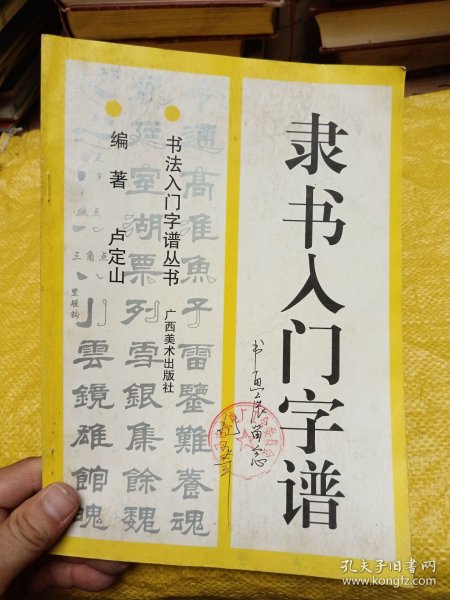 隶书入门字谱
书法入门字谱丛书
广西美术出版社
编著 卢定山
今通高淮鱼子雷鑒難養魂
延室湖票列雪銀集餘魏
雲鏡雄館魄
点
挑点
三角点
竖短钩
书画展留念
孔夫子旧书网
www.kongfz.com